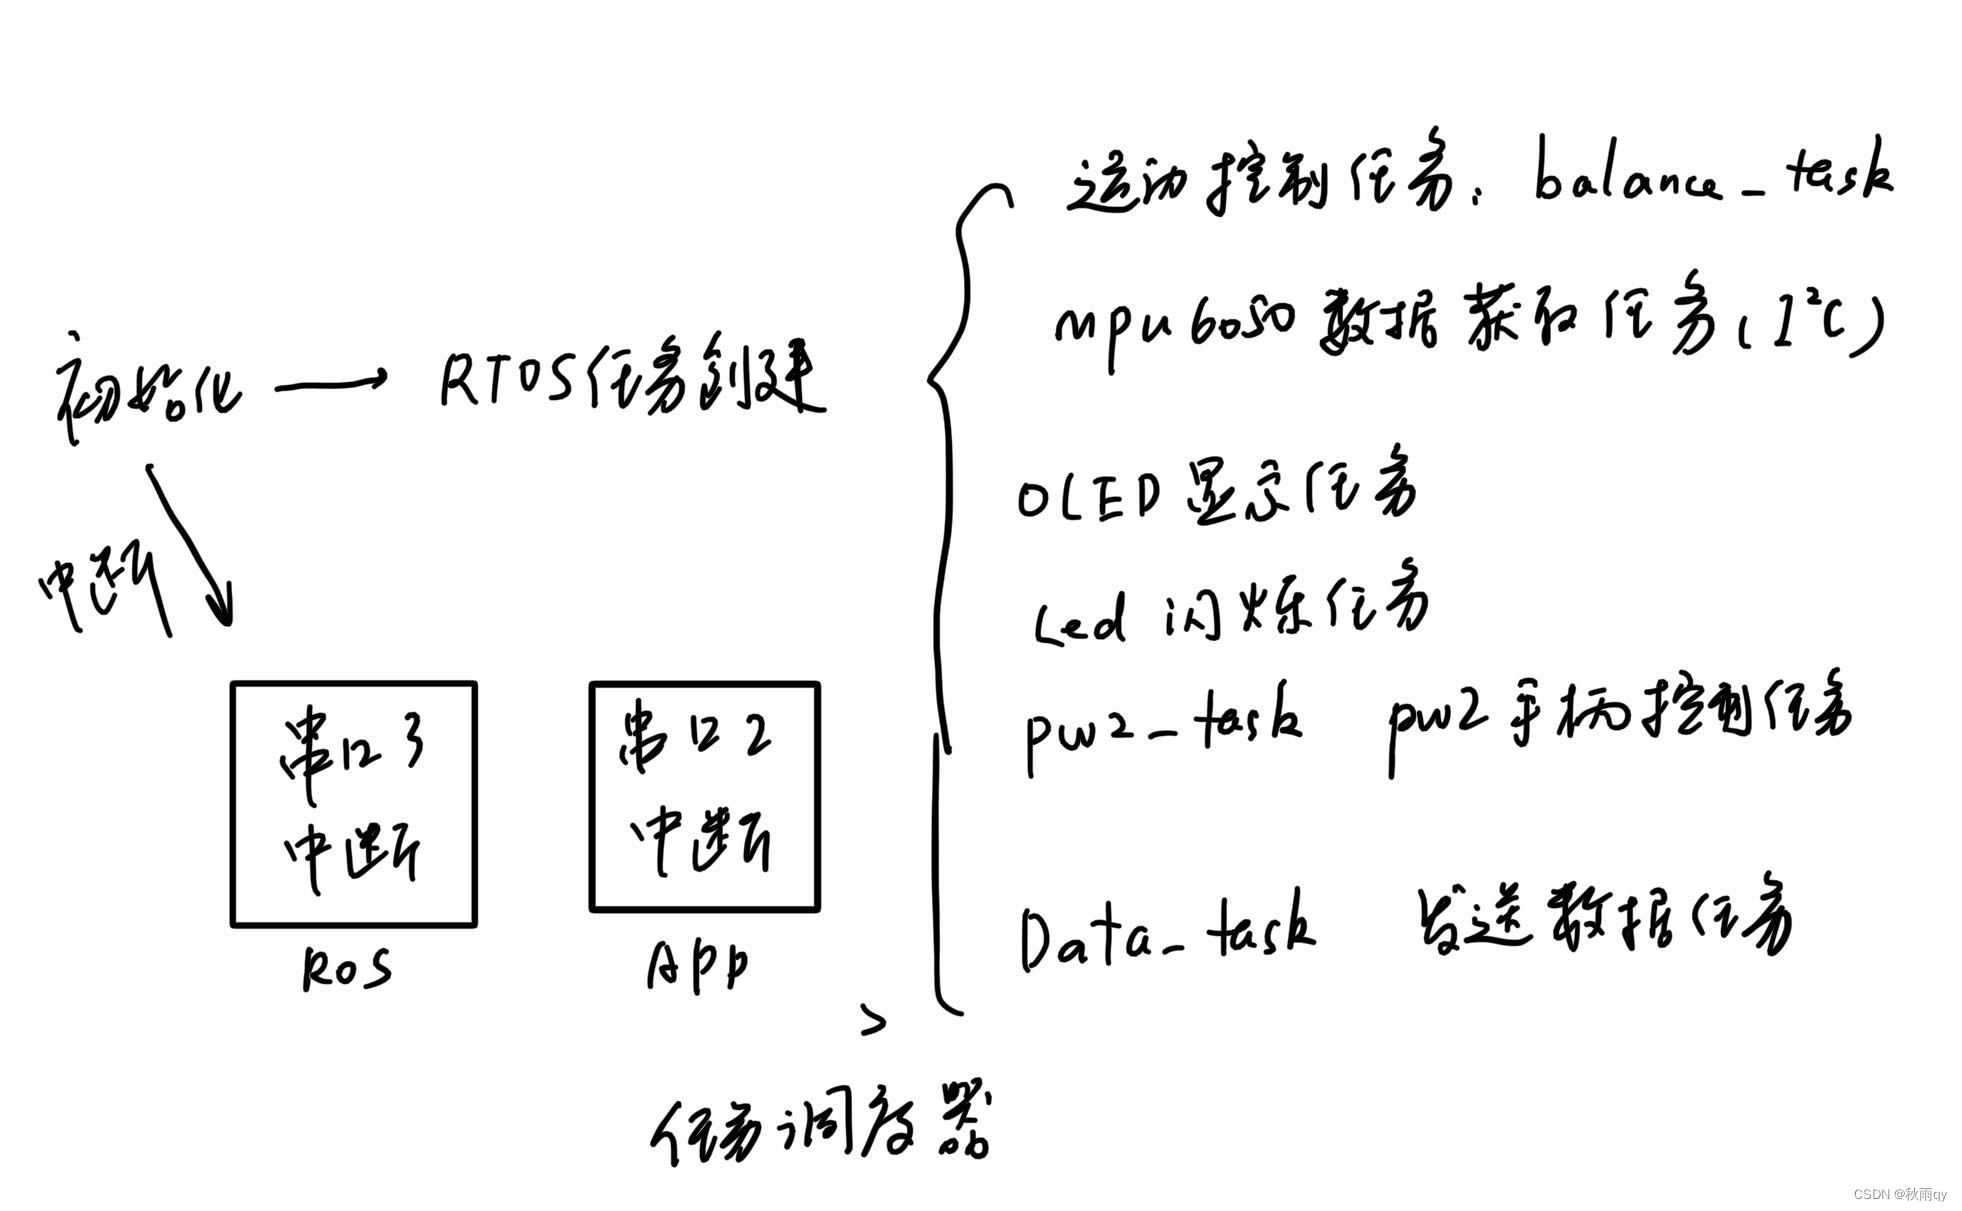 初始化 → RTOS任务创建
中断
串口3
中断
ROS
串口2
中断
App
任务调度器
运动控制任务: balance_task
mpu6050 数据获取任务 (I²C)
OLED 显示任务
Led 闪烁任务
pw2_task pw2手柄控制任务
Data_task 发送数据任务
CSDN @秋雨qy